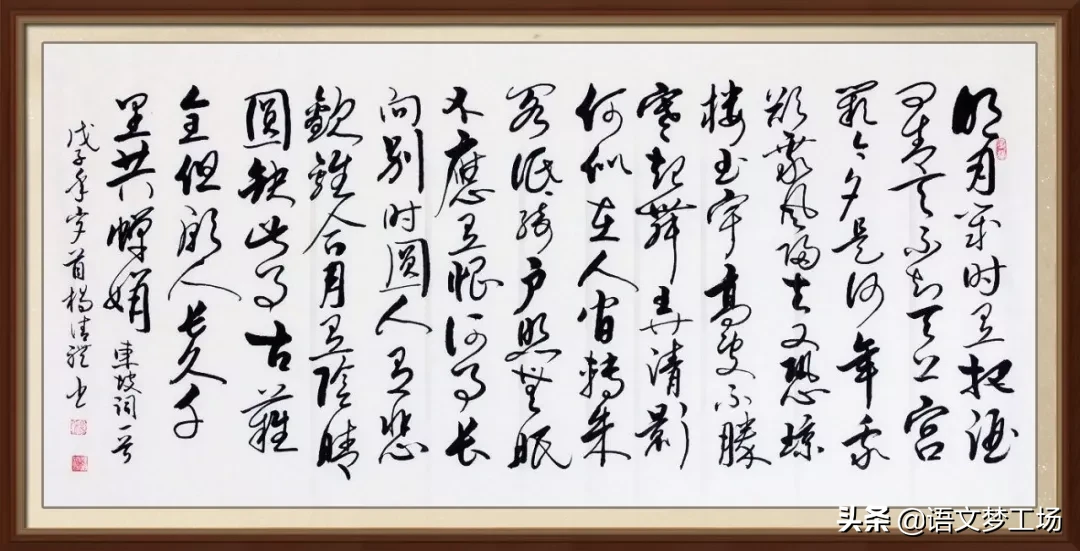 明月几时有把酒
问青天不知天上宫
阙今夕是何年我
欲乘风归去又恐琼
楼玉宇高处不胜
寒起舞弄清影
何似在人间轉朱
阁低绮户照无眠
不應有恨何事长
向别时圓人有悲
歡離合月有阴晴
圓缺此事古難
全但愿人长久千
里共婵娟
東坡词一首
戊子年岁首杨清书
头条 @语文梦工场